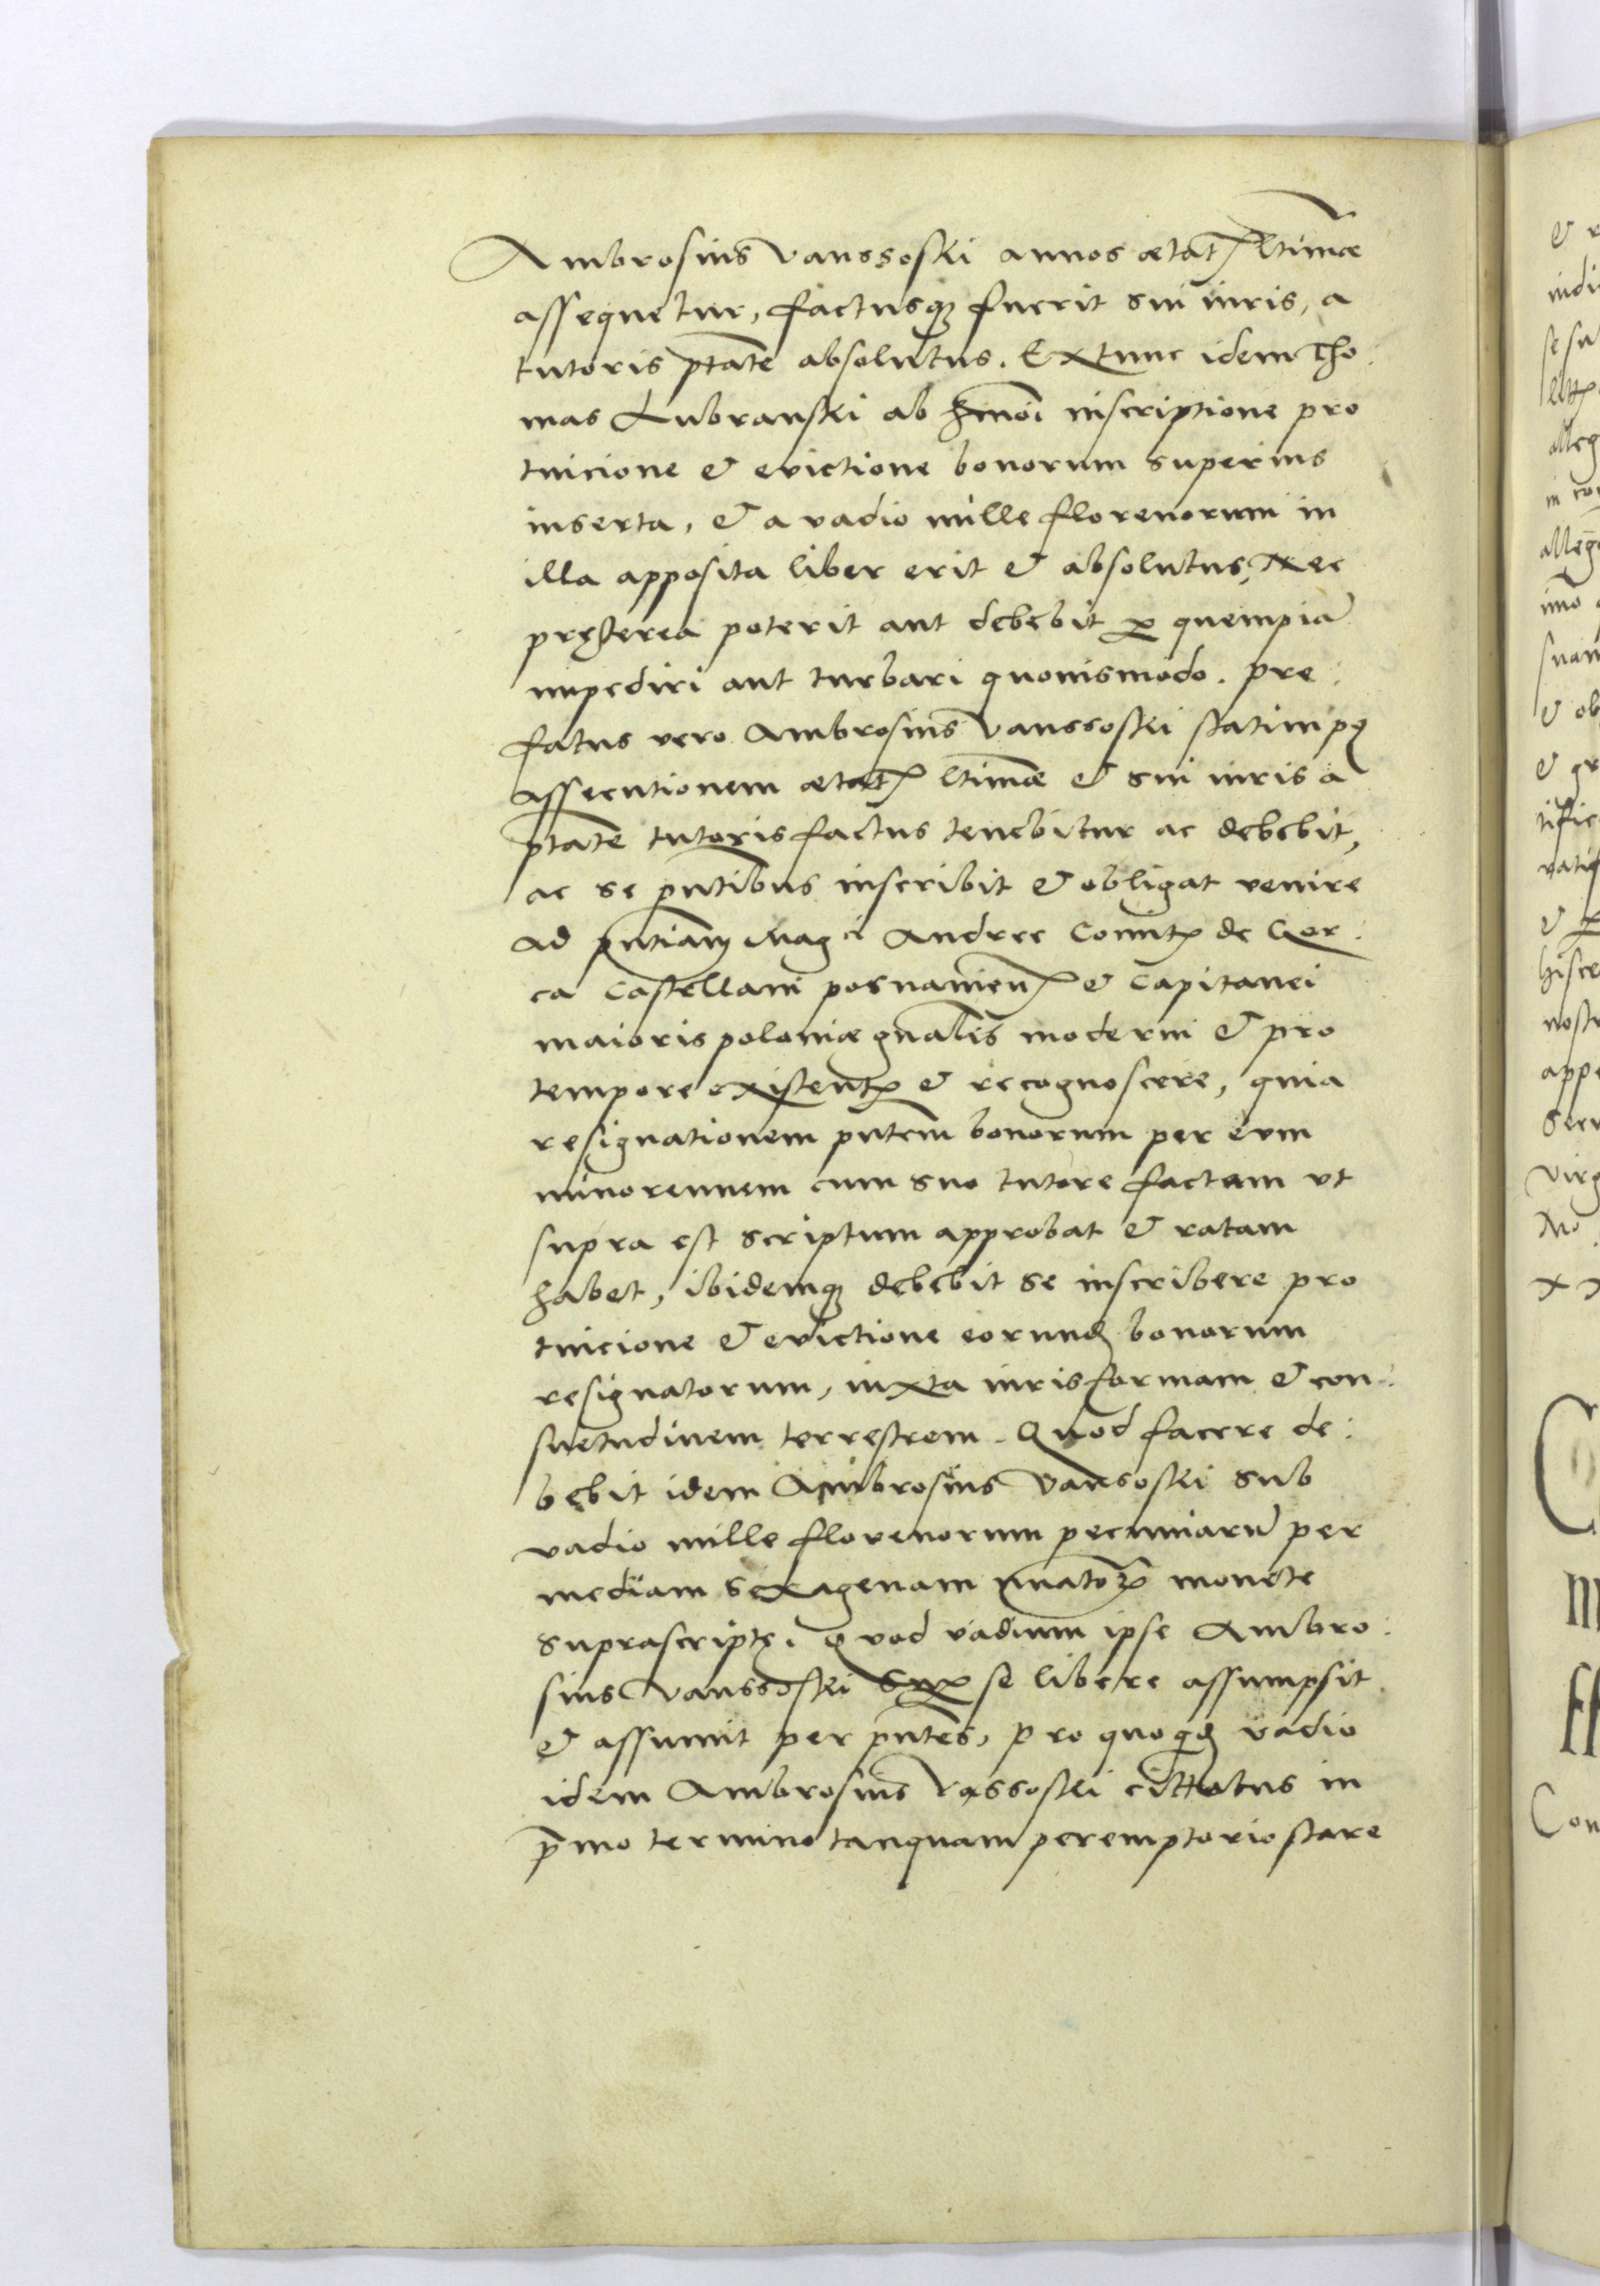 Ambrosius Vanssoski annos ætat. ltimæ
assequetur, factusq; fuerit sui iuris, a
tutoris ptāte absolutus. Extunc idem Tho:
mas Lubranski ab hmōi inscriptione pro
tuicione & evictione bonorum superius
inserta, & a vadio mille florenorum in
illa apposita liber erit & absolutus, Nec
pręterea poterit aut debebit p quempiā
impediri aut turbari quovismodo. Pre:
fatus vero Ambrosius Vanssoski statim pq
assecutionem ætat. ltimæ & sui iuris a
ptāte tutoris factus tenebitur ac debebit,
ac se pntibus inscribit & obligat venire
ad pntiam Magci Andree Comit. de Gor:
ca Castellani posnanien. & Capitanei
maioris poloniæ gnalis moderni & pro
tempore existent. & recognoscere, quia
resignationem pntem bonorum per eum
minorennem cum suo tutore factam ut
supra est scriptum approbat & ratam
habet, ibidemq; debebit se inscribere pro
tuicione & evictione eorund. bonorum
resignatorum, iuxta iuris formam & con:
suetudinem terrestrem. Quod facere de:
bębit idem Ambrosius Vansoski sub
vadio mille florenorum pecuniarū per
mediam sexagenam monete
suprascriptę. Quod vadium ipse Ambro:
sius Vanssoski se libere assumpsit
& assumit per pntes, pro quo qd vadio
idem Ambrosius Vassoski cittatus in
pmo termino tanquam peremptorio stare